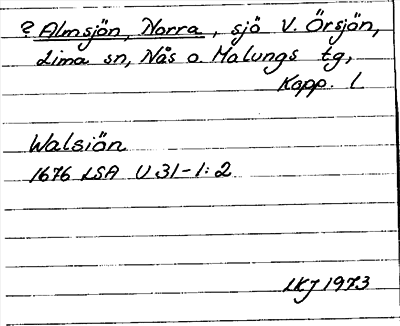 ? Almsjön, Norra, sjö V. Örsjön,
Lima sn, Nås o. Malungs tg,
Kopp. l
Walsiön
1676 LSA U 31-1:2
LKJ 1973